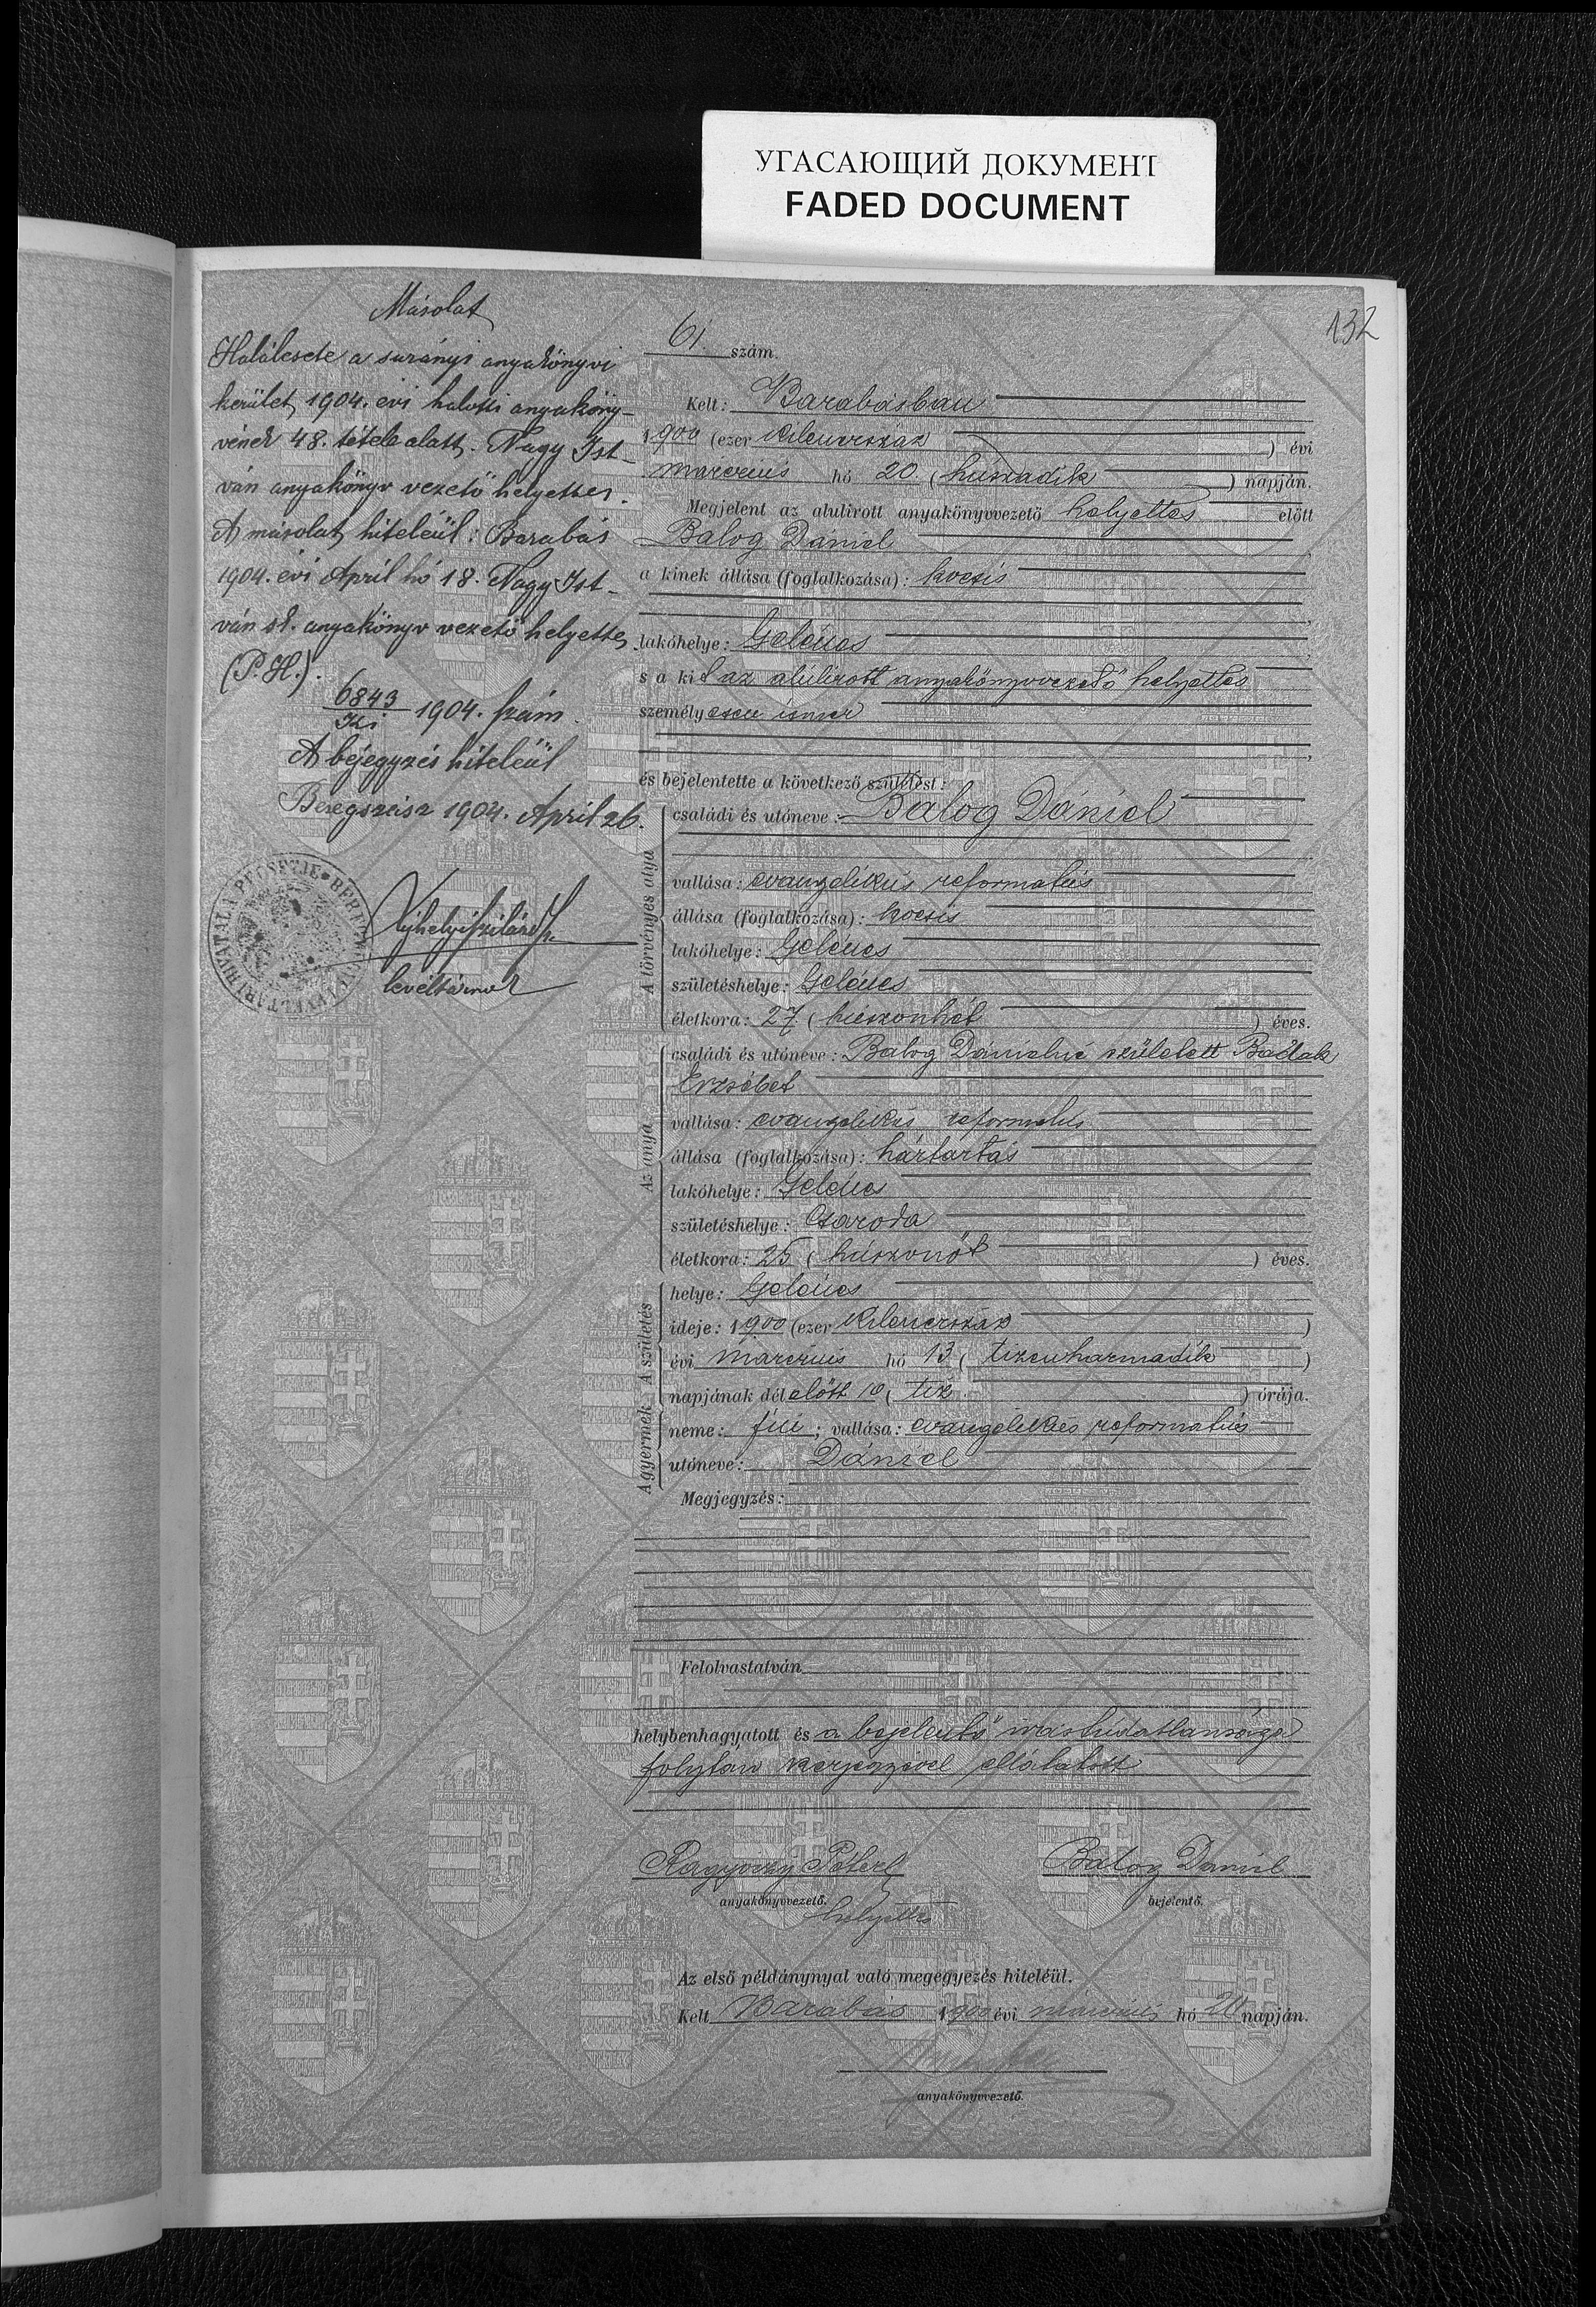 УГАСАЮЩИЙ ДОКУМЕНТ
FADED DOCUMENT
132
Másolat
Halálesete a surányi anyakönyvi
kerület 1904. évi halotti anyaköny-
vének 48. tétele alatt. Nagy Ist-
ván anyakönyv vezető helyettes.
A másolat hiteléül: Barabás
1904. évi Április hó 18. Nagy Ist-
ván sk. anyakönyv vezető helyettes
(P. H.).
6843
1904. szám.
A bejegyzés hiteléül
Beregszász 1904. April 26.
levéltárnok
61. szám.
Kelt: Barabásban
1900 (ezer kilencszáz ) évi
márczius hó 20. (huszadik ) napján.
Megjelent az alulirott anyakönyvvezető helyettes előtt
Balog Dániel
a kinek állása (foglalkozása): kocsis
lakóhelye: Gelénes
s a kit az alulirott anyakönyvvezető helyettes
személyesen ismer
és bejelentette a következő születést:
A törvényes atya
családi és utóneve: Balog Dániel
vallása: evangélikus reformatus
állása (foglalkozása): kocsis
lakóhelye: Gelénes
születéshelye: Gelénes
életkora: 27 (huszonhét ) éves.
Az anya
családi és utóneve: Balog Dánielné született Badak
Erzsébet
vallása: evangélikus reformatus
állása (foglalkozása): háztartás
lakóhelye: Gelénes
születéshelye: Csaroda
életkora: 25 (huszonöt ) éves.
A születés
helye: Gelénes
ideje: 1900 (ezer kilenczszáz )
évi márczius hó 13 ( tizenharmadik )
napjának délelőtt 10 ( tiz ) órája.
A gyermek
neme: fiú ; vallása: evangélikus reformatus
utóneve: Dániel
Megjegyzés:
Felolvastatván
helybenhagyatott és a bejelentő irástudatlansága
folytán kézjegyével ellátatott
Balog Daniel
anyakönyvvezető. bejelentő.
helyettes
Az első példánynyal való megegyezés hiteléül.
Kelt Barabás 1900 évi márczius hó 20 napján.
anyakönyvvezető.